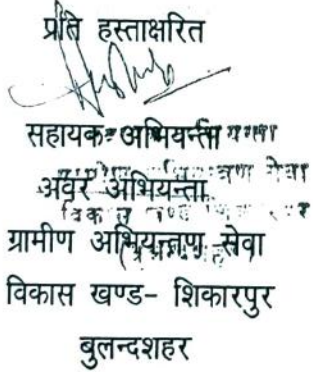 प्रति हस्ताक्षरित
सहायक अभियन्ता
अवर अभियन्ता
ग्रामीण अभियन्त्रण सेवा
विकास खण्ड- शिकारपुर
बुलन्दशहर